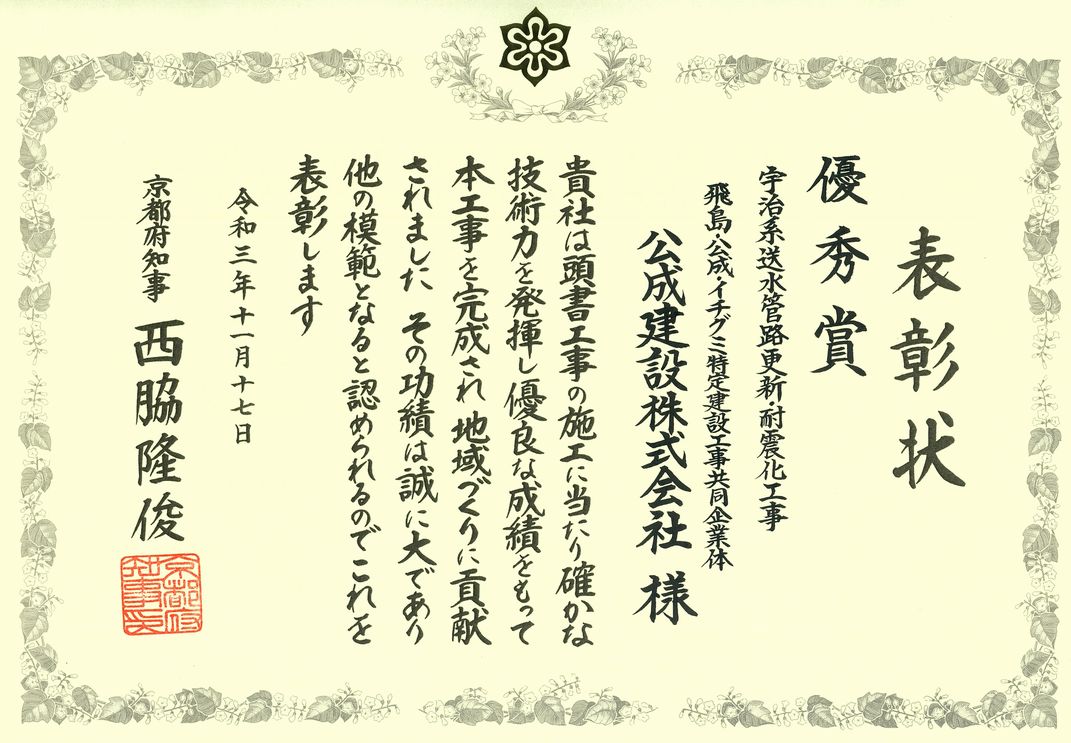 表彰状
優秀賞
宇治系送水管路更新・耐震化工事
飛島・公成・イチグミ特定建設工事共同企業体
公成建設株式会社 様
貴社は頭書工事の施工に当たり確かな
技術力を発揮し優良な成績をもって
本工事を完成され 地域づくりに貢献
されました その功績は誠に大であり
他の模範となると認められるのでこれを
表彰します
令和三年十一月十七日
京都府知事 西脇隆俊
京都府知事印